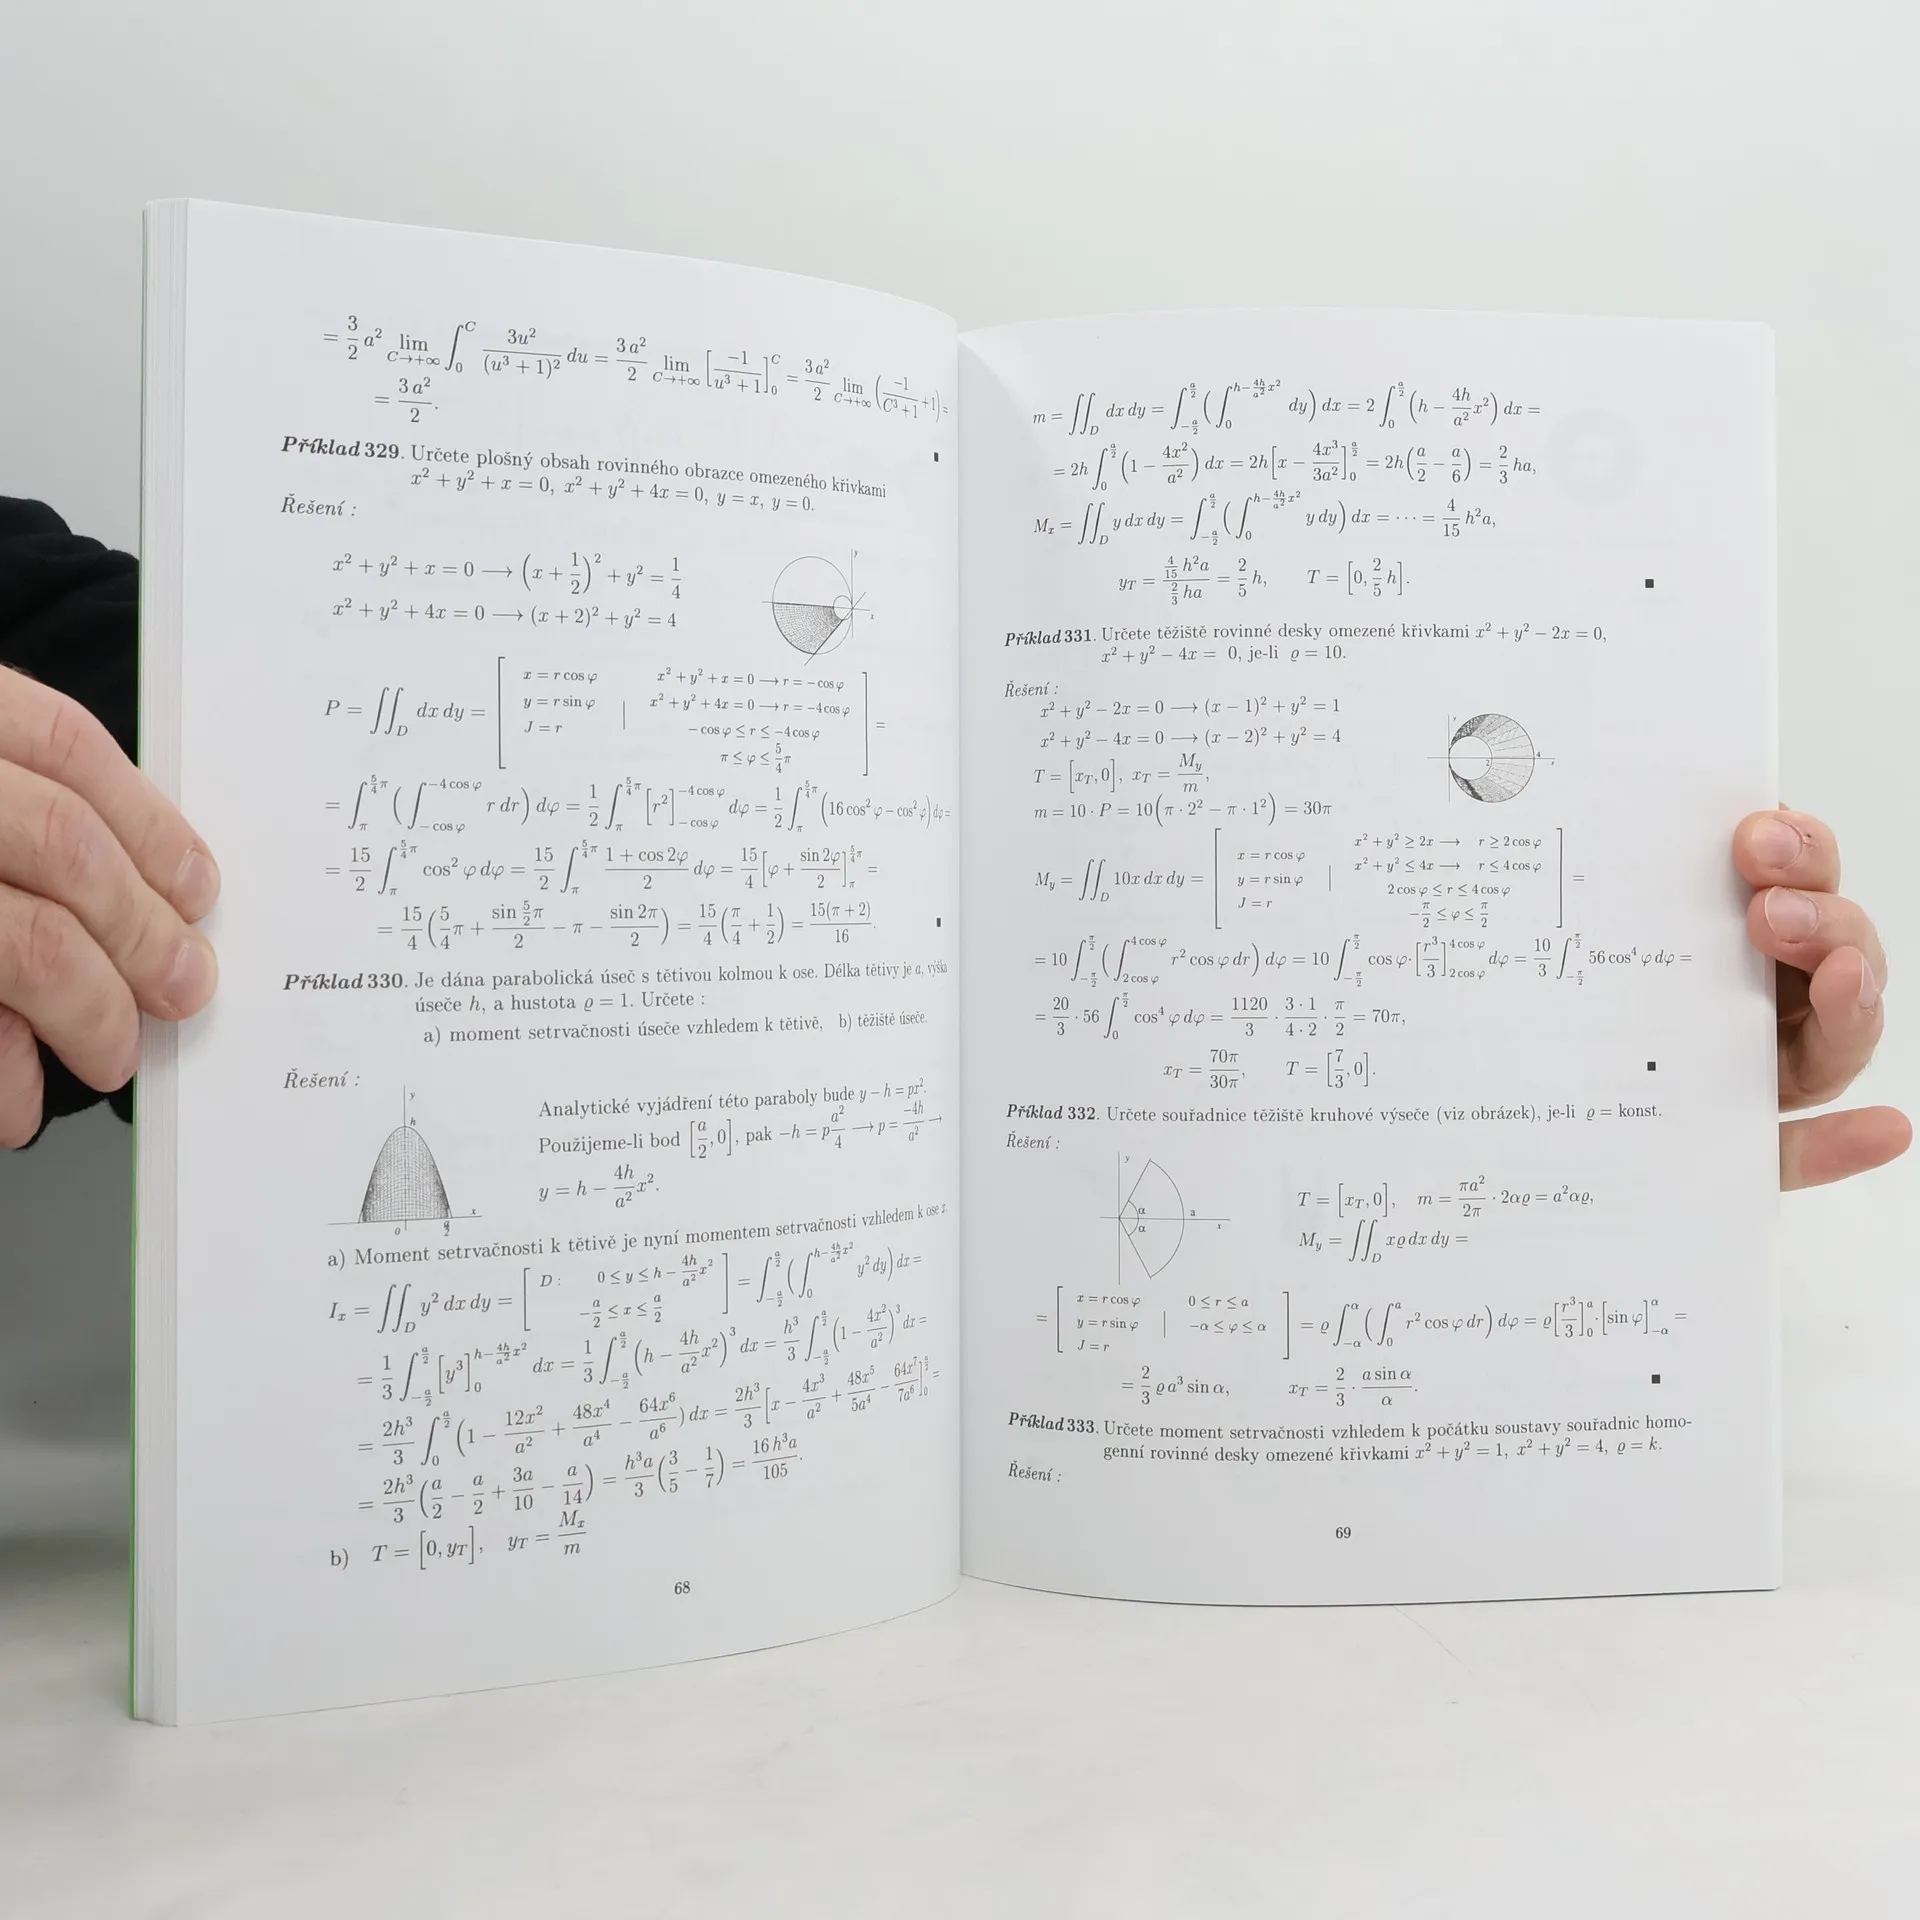 = 3/2 a² lim_{C→+∞} ∫_0^C 3u²/(u³ + 1)² du = 3a²/2 lim_{C→+∞} [−1/(u³ + 1)]_0^C = 3a²/2 lim_{C→+∞} (−1/(C³ + 1) + 1) =
= 3a²/2.
Příklad 329. Určete plošný obsah rovinného obrazce omezeného křivkami
x² + y² + x = 0, x² + y² + 4x = 0, y = x, y = 0.
Řešení :
x² + y² + x = 0 ⟶ (x + 1/2)² + y² = 1/4
x² + y² + 4x = 0 ⟶ (x + 2)² + y² = 4
y
x
P = ∬_D dx dy = [ x = r cos φ | x² + y² + x = 0 ⟶ r = − cos φ
y = r sin φ | x² + y² + 4x = 0 ⟶ r = −4 cos φ
J = r | − cos φ ≤ r ≤ −4 cos φ
π ≤ φ ≤ 5/4 π ] =
= ∫_π^{5/4 π} (∫_{− cos φ}^{−4 cos φ} r dr) dφ = 1/2 ∫_π^{5/4 π} [r²]_{− cos φ}^{−4 cos φ} dφ = 1/2 ∫_π^{5/4 π} (16 cos² φ − cos² φ) dφ =
= 15/2 ∫_π^{5/4 π} cos² φ dφ = 15/2 ∫_π^{5/4 π} (1 + cos 2φ)/2 dφ = 15/4 [φ + sin 2φ/2]_π^{5/4 π} =
= 15/4 (5/4 π + sin 5/2 π/2 − π − sin 2π/2) = 15/4 (π/4 + 1/2) = 15(π + 2)/16.
Příklad 330. Je dána parabolická úseč s tětivou kolmou k ose. Délka tětivy je a, výška
úseče h, a hustota ϱ = 1. Určete :
a) moment setrvačnosti úseče vzhledem k tětivě, b) těžiště úseče.
Řešení :
y
h
0
a/2
x
Analytické vyjádření této paraboly bude y − h = px².
Použijeme-li bod [a/2, 0], pak −h = p a²/4 ⟶ p = −4h/a² →
y = h − 4h/a² x².
a) Moment setrvačnosti k tětivě je nyní momentem setrvačnosti vzhledem k ose x.
I_x = ∬_D y² dx dy = [ D : 0 ≤ y ≤ h − 4h/a² x²
−a/2 ≤ x ≤ a/2 ] = ∫_{−a/2}^{a/2} (∫_0^{h − 4h/a² x²} y² dy) dx =
= 1/3 ∫_{−a/2}^{a/2} [y³]_0^{h − 4h/a² x²} dx = 1/3 ∫_{−a/2}^{a/2} (h − 4h/a² x²)³ dx = h³/3 ∫_{−a/2}^{a/2} (1 − 4x²/a²)³ dx =
= 2h³/3 ∫_0^{a/2} (1 − 12x²/a² + 48x⁴/a⁴ − 64x⁶/a⁶) dx = 2h³/3 [x − 4x³/a² + 48x⁵/5a⁴ − 64x⁷/7a⁶]_0^{a/2} =
= 2h³/3 (a/2 − a/2 + 3a/10 − a/14) = h³a/3 (3/5 − 1/7) = 16 h³a/105.
b) T = [0, y_T], y_T = M_x/m
68
m = ∬_D dx dy = ∫_{−a/2}^{a/2} (∫_0^{h − 4h/a² x²} dy) dx = 2 ∫_0^{a/2} (h − 4h/a² x²) dx =
= 2h ∫_0^{a/2} (1 − 4x²/a²) dx = 2h [x − 4x³/3a²]_0^{a/2} = 2h (a/2 − a/6) = 2/3 ha,
M_x = ∬_D y dx dy = ∫_{−a/2}^{a/2} (∫_0^{h − 4h/a² x²} y dy) dx = · · · = 4/15 h²a,
y_T = (4/15 h²a)/(2/3 ha) = 2/5 h, T = [0, 2/5 h].
Příklad 331. Určete těžiště rovinné desky omezené křivkami x² + y² − 2x = 0,
x² + y² − 4x = 0, je-li ϱ = 10.
Řešení :
x² + y² − 2x = 0 ⟶ (x − 1)² + y² = 1
x² + y² − 4x = 0 ⟶ (x − 2)² + y² = 4
T = [x_T, 0], x_T = M_y/m,
m = 10 · P = 10 (π · 2² − π · 1²) = 30π
y
2
4
x
M_y = ∬_D 10x dx dy = [ x = r cos φ | x² + y² ≥ 2x ⟶ r ≥ 2 cos φ
y = r sin φ | x² + y² ≤ 4x ⟶ r ≤ 4 cos φ
J = r | 2 cos φ ≤ r ≤ 4 cos φ
−π/2 ≤ φ ≤ π/2 ] =
= 10 ∫_{−π/2}^{π/2} (∫_{2 cos φ}^{4 cos φ} r² cos φ dr) dφ = 10 ∫_{−π/2}^{π/2} cos φ · [r³/3]_{2 cos φ}^{4 cos φ} dφ = 10/3 ∫_{−π/2}^{π/2} 56 cos⁴ φ dφ =
= 20/3 · 56 ∫_0^{π/2} cos⁴ φ dφ = 1120/3 · 3 · 1/4 · 2 · π/2 = 70π,
x_T = 70π/30π, T = [7/3, 0].
Příklad 332. Určete souřadnice těžiště kruhové výseče (viz obrázek), je-li ϱ = konst.
Řešení :
y
α
α
a
x
T = [x_T, 0], m = πa²/2π · 2αϱ = a²αϱ,
M_y = ∬_D xϱ dx dy =
= [ x = r cos φ | 0 ≤ r ≤ a
y = r sin φ | −α ≤ φ ≤ α
J = r ] = ϱ ∫_{−α}^α (∫_0^a r² cos φ dr) dφ = ϱ [r³/3]_0^a · [sin φ]_{−α}^α =
= 2/3 ϱ a³ sin α, x_T = 2/3 · a sin α/α.
Příklad 333. Určete moment setrvačnosti vzhledem k počátku soustavy souřadnic homo-
genní rovinné desky omezené křivkami x² + y² = 1, x² + y² = 4, ϱ = k.
Řešení :
69